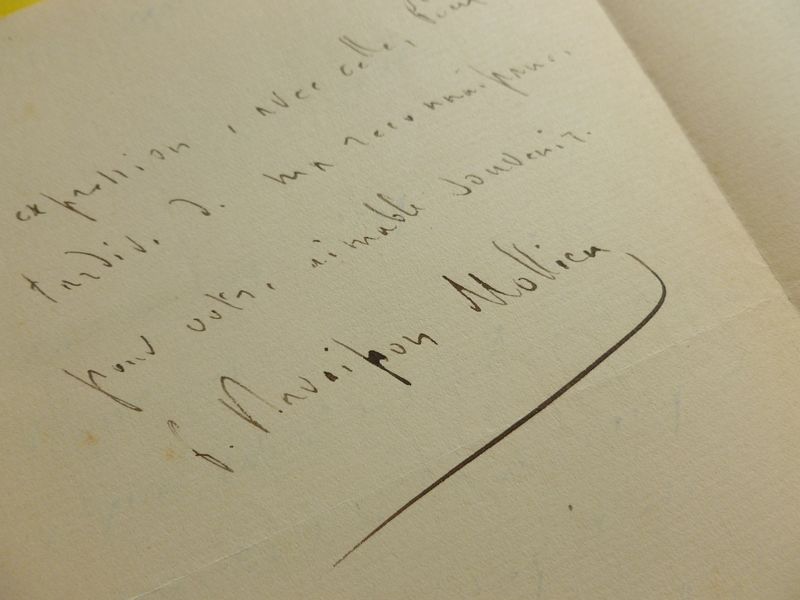 expression, avec celle, bien
tardive de ma reconnaissance
pour votre aimable souvenir.
F. Ravaisson Mollien